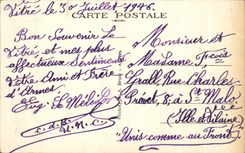 Vitré le 30 Juillet 1946.
CARTE POSTALE
Bon Souvenir de
Vitré, et mes plus
affectueux Sentiments
Votre Ami et Frère
d'Armes
Monsieur et
Madame
Rue Charles
à St Malo
(Ille et Vilaine)
"Unis comme au Front"